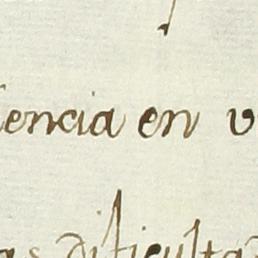 iencia en v
as dificulta